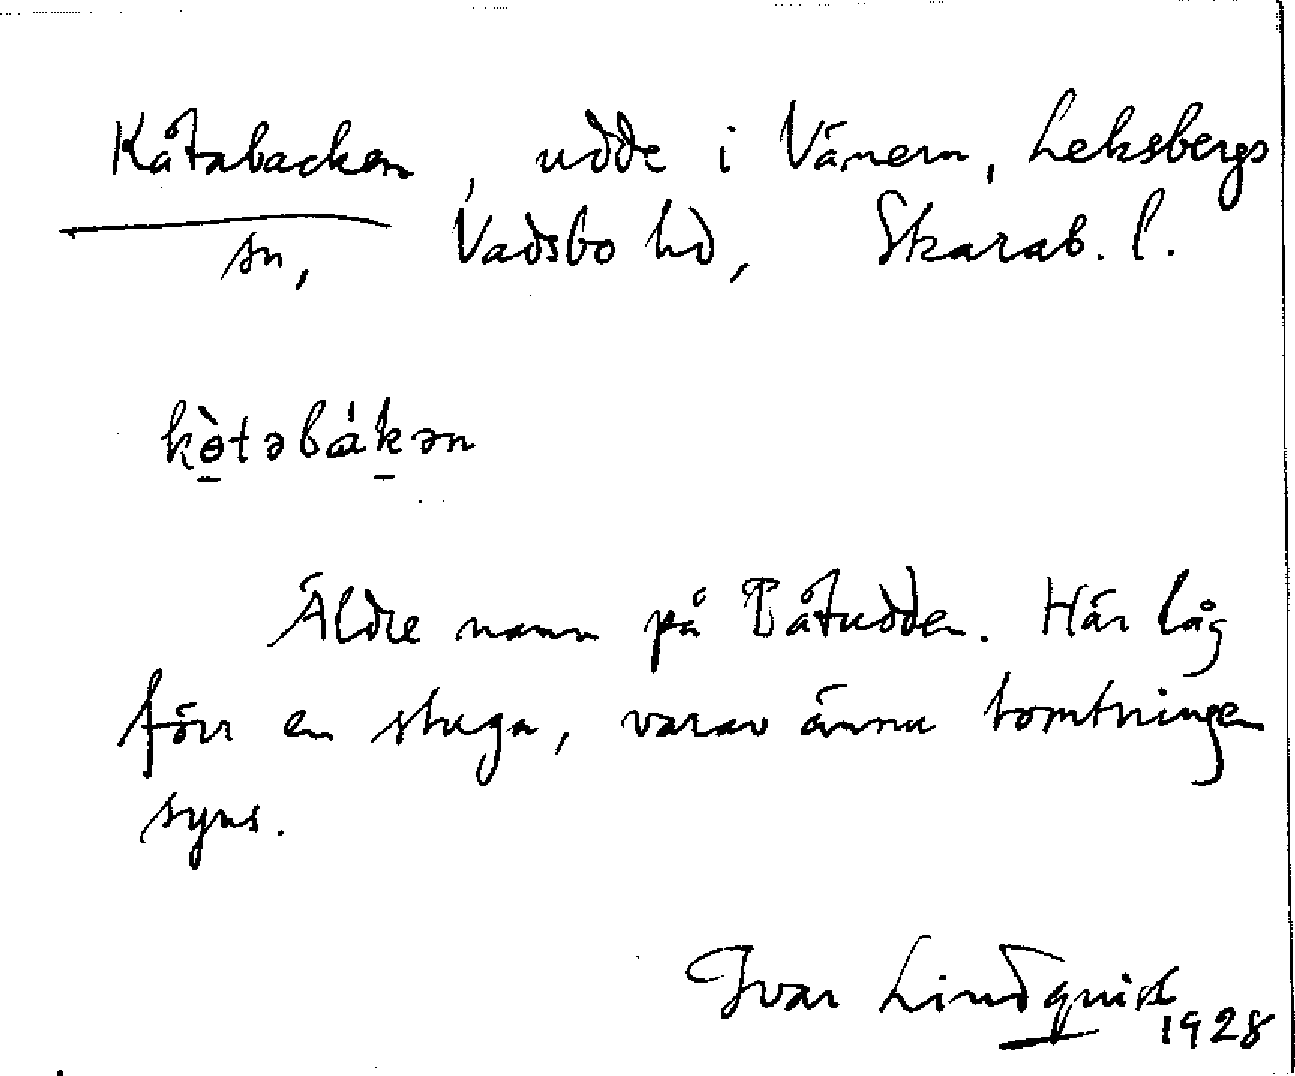 Kåtabacken, udde i Vänern, Leksbergs
sn, Vadsbo hd, Skarab. l.
kɵ̠̀təbák̠ən
Äldre namn på Båtudden. Här låg
förr en stuga, varav ännu tomtningen
syns.
Ivar Lindquist
1928